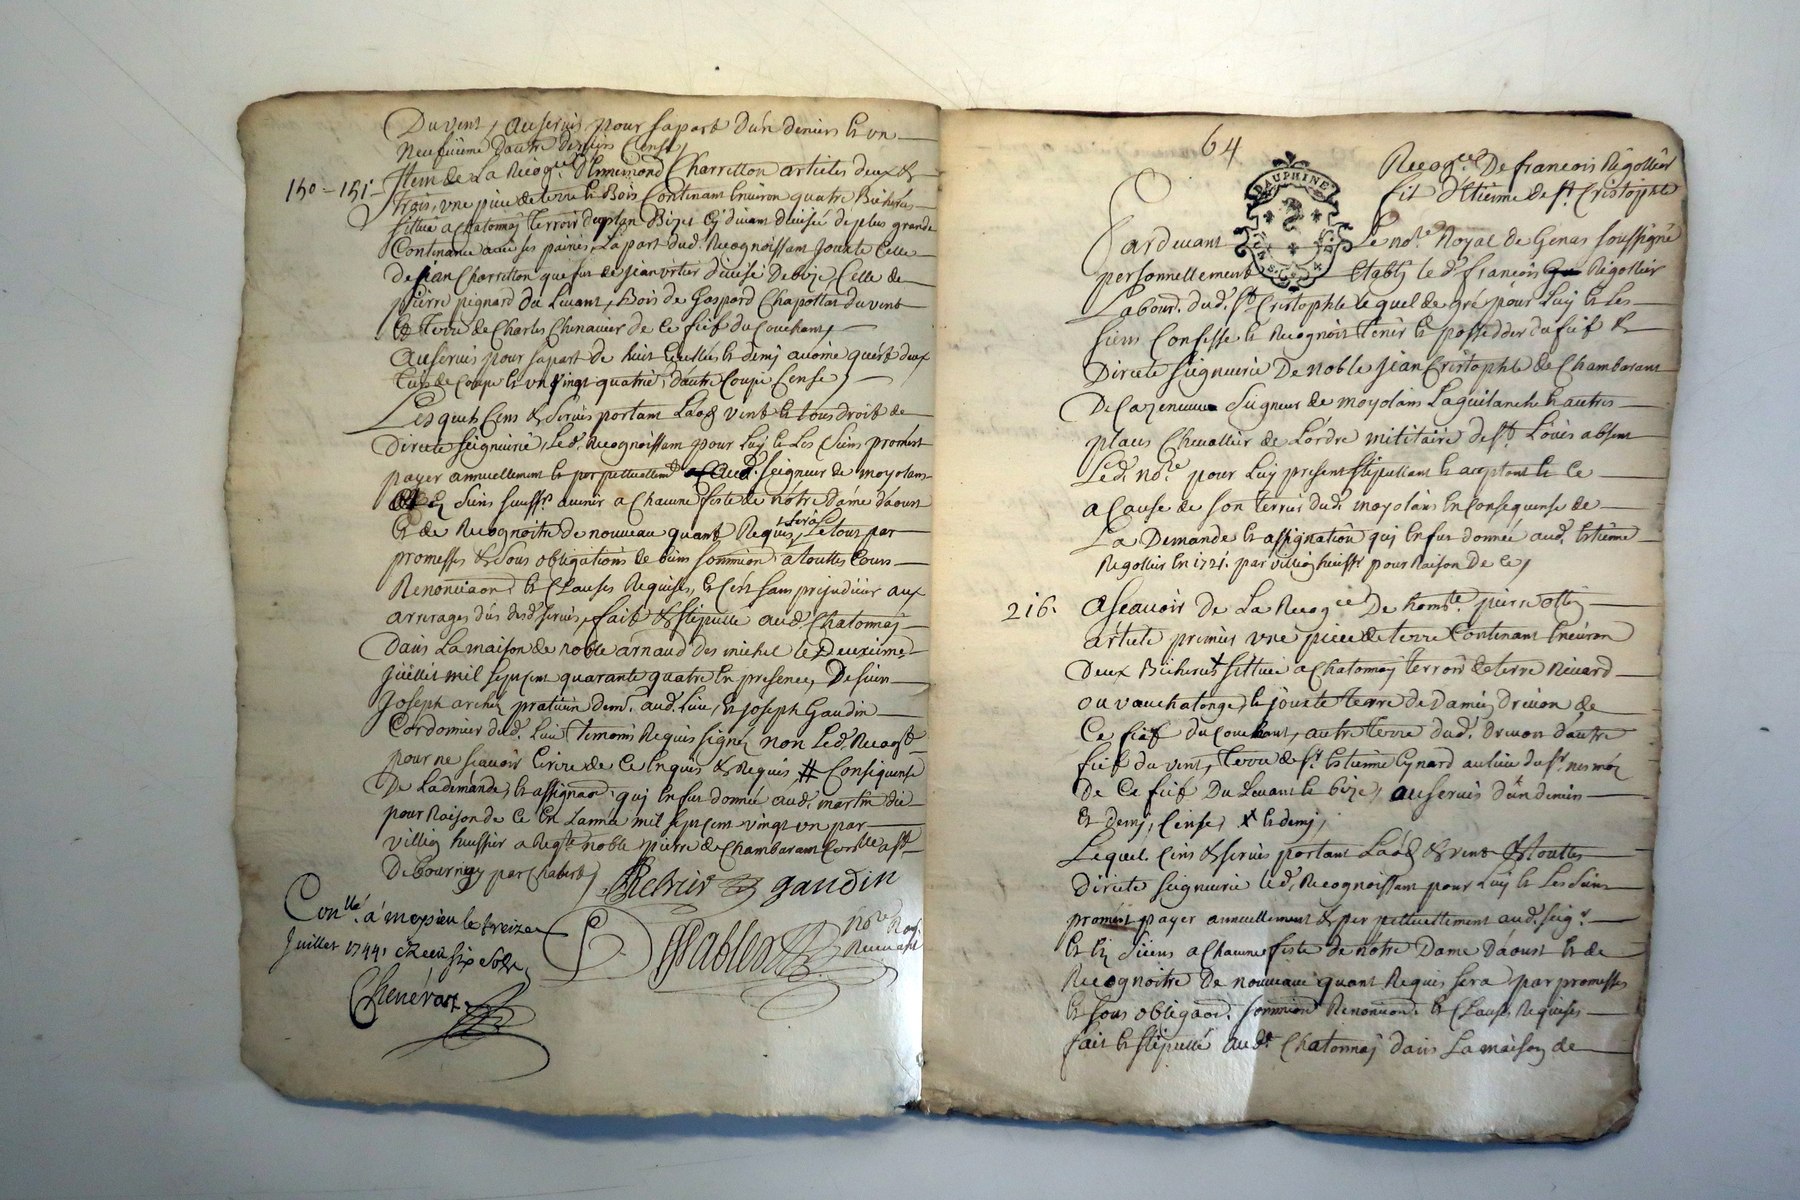 Du vent, au servis pour sa part d'un deniers et un
neufvieme d'autre deniers cense
150 - 151 Item de la Recog.ce d'Ennemond Charretton articles deux &
trois, une piece de terre et Bois contenant environ quatre Bicherées
sittuée a Chatonnay terroir du plan Bizet cy divant divisée de plus grande
Continance avec ses paires, la part dud. Recognoissant jouxte celle
de jean Charretton que fut de jean divisé de bize, celle de
pierre pegnard du Levant, Bois de Gaspard Chapottat du vent
et terre de Charles Chenavier de ce fief du Couchant,
au servis pour sa part de huit et demy avoine quart deux
tiers de coupe et un vingt quatrie. d'autre coupe cense,
Lesquels Cens & servis portant Laods vent et tous droit de
Directe seigneurie, Led. Recognoissant pour Luy et Les siens promert
payer annuellement et perpettuellem.t aud. seigneur de moyolans
et es siens a Chacune feste de nôtre dame d'aoust
et de Recognoitre de nouveau quant Requis sera Le tout par
promesses & sous obligations de biens a touttes Cours
Renonciaon. et Clauses Requises, et c'est sans prejudicier aux
arrerages dus desd. servis, fait & stipullé aud. Chatonnay
dans La maison de noble arnaud des michel le Deuxieme
juillet mil sept cent quarante quatre en presence, De sieur
Joseph archer praticien dem.t aud. Lieu, et joseph Gaudin
Cordonnier dud. Lieu temoins Requis signez non Led. Recog.t
pour ne sçavoir écrire de ce Enquis & Requis # Consequense
De La demande et assignaon. qui en fut donnée aud. martin
pour Raison de ce en Lannée mil sept cent vingt un par
villioz huissier a Reg.te noble pierre de Chambaran
De bourniez par Chabert
Gaudin
Con.llé a moysieu le treize
Juillet 1744, Receu six sols
Chenévaz
64
Recog.ce De francois Rigollier
fil d'Etienne de s.t Cristophle
DAUPHINE
Pardevant Le no.re Royal de Genas soussigné
personnellement etably led. francois Rigollier
Labour. dud. s.t Cristophle lequel de gré pour Luy et Les
siens Confesse et Recognoit tenir et posseder du fief &
Directe seigneurie De noble jean Cristophle de Chambarant
De Cazeneuve seigneur de moyolans Laguilanche & autres
places Chevallier de L'ordre militaire de s.t Loüis absent
Led. no.re pour Luy present stipullant et aceptant et ce
a Cause de son terrier dud. moyolans en Consequense de
La Demande et assignation qui en fut donnée aud. Estienne
Rigollier en 1721. par villioz huissr pour Raison de ce,
216. ascavoir de La Recog.ce De hom.te pierre
article premier une piece de terre Contenant environ
Deux Bicherées sittuée a Chatonnay terroir de terre Nivard
ou vauchatonge, et jouxte terre de Damiez drevon de
Ce fief du Couchant, autre terre dud. drevon d'autre
fief du vent, terre de s.r Estienne Cynard au lieu du s.r
de ce fief Du Levant et bize, au servis d'un denier
et demy, Cense, et demy,
Lequel Cens & servis portant Laods & vent & touttes
directe seigneurie led. Recognoissant pour Luy et Les siens
promert payer annuellement & perpettuellement aud. seig.r
et es siens a Chacune feste de notre Dame D'aoust et de
Recognoitre De nouveau quant Requis sera par promesses
et sous obligaon. Renonciaon. et Clauses Requises
fait et stipullé aud.t Chatonnay dans La maison de